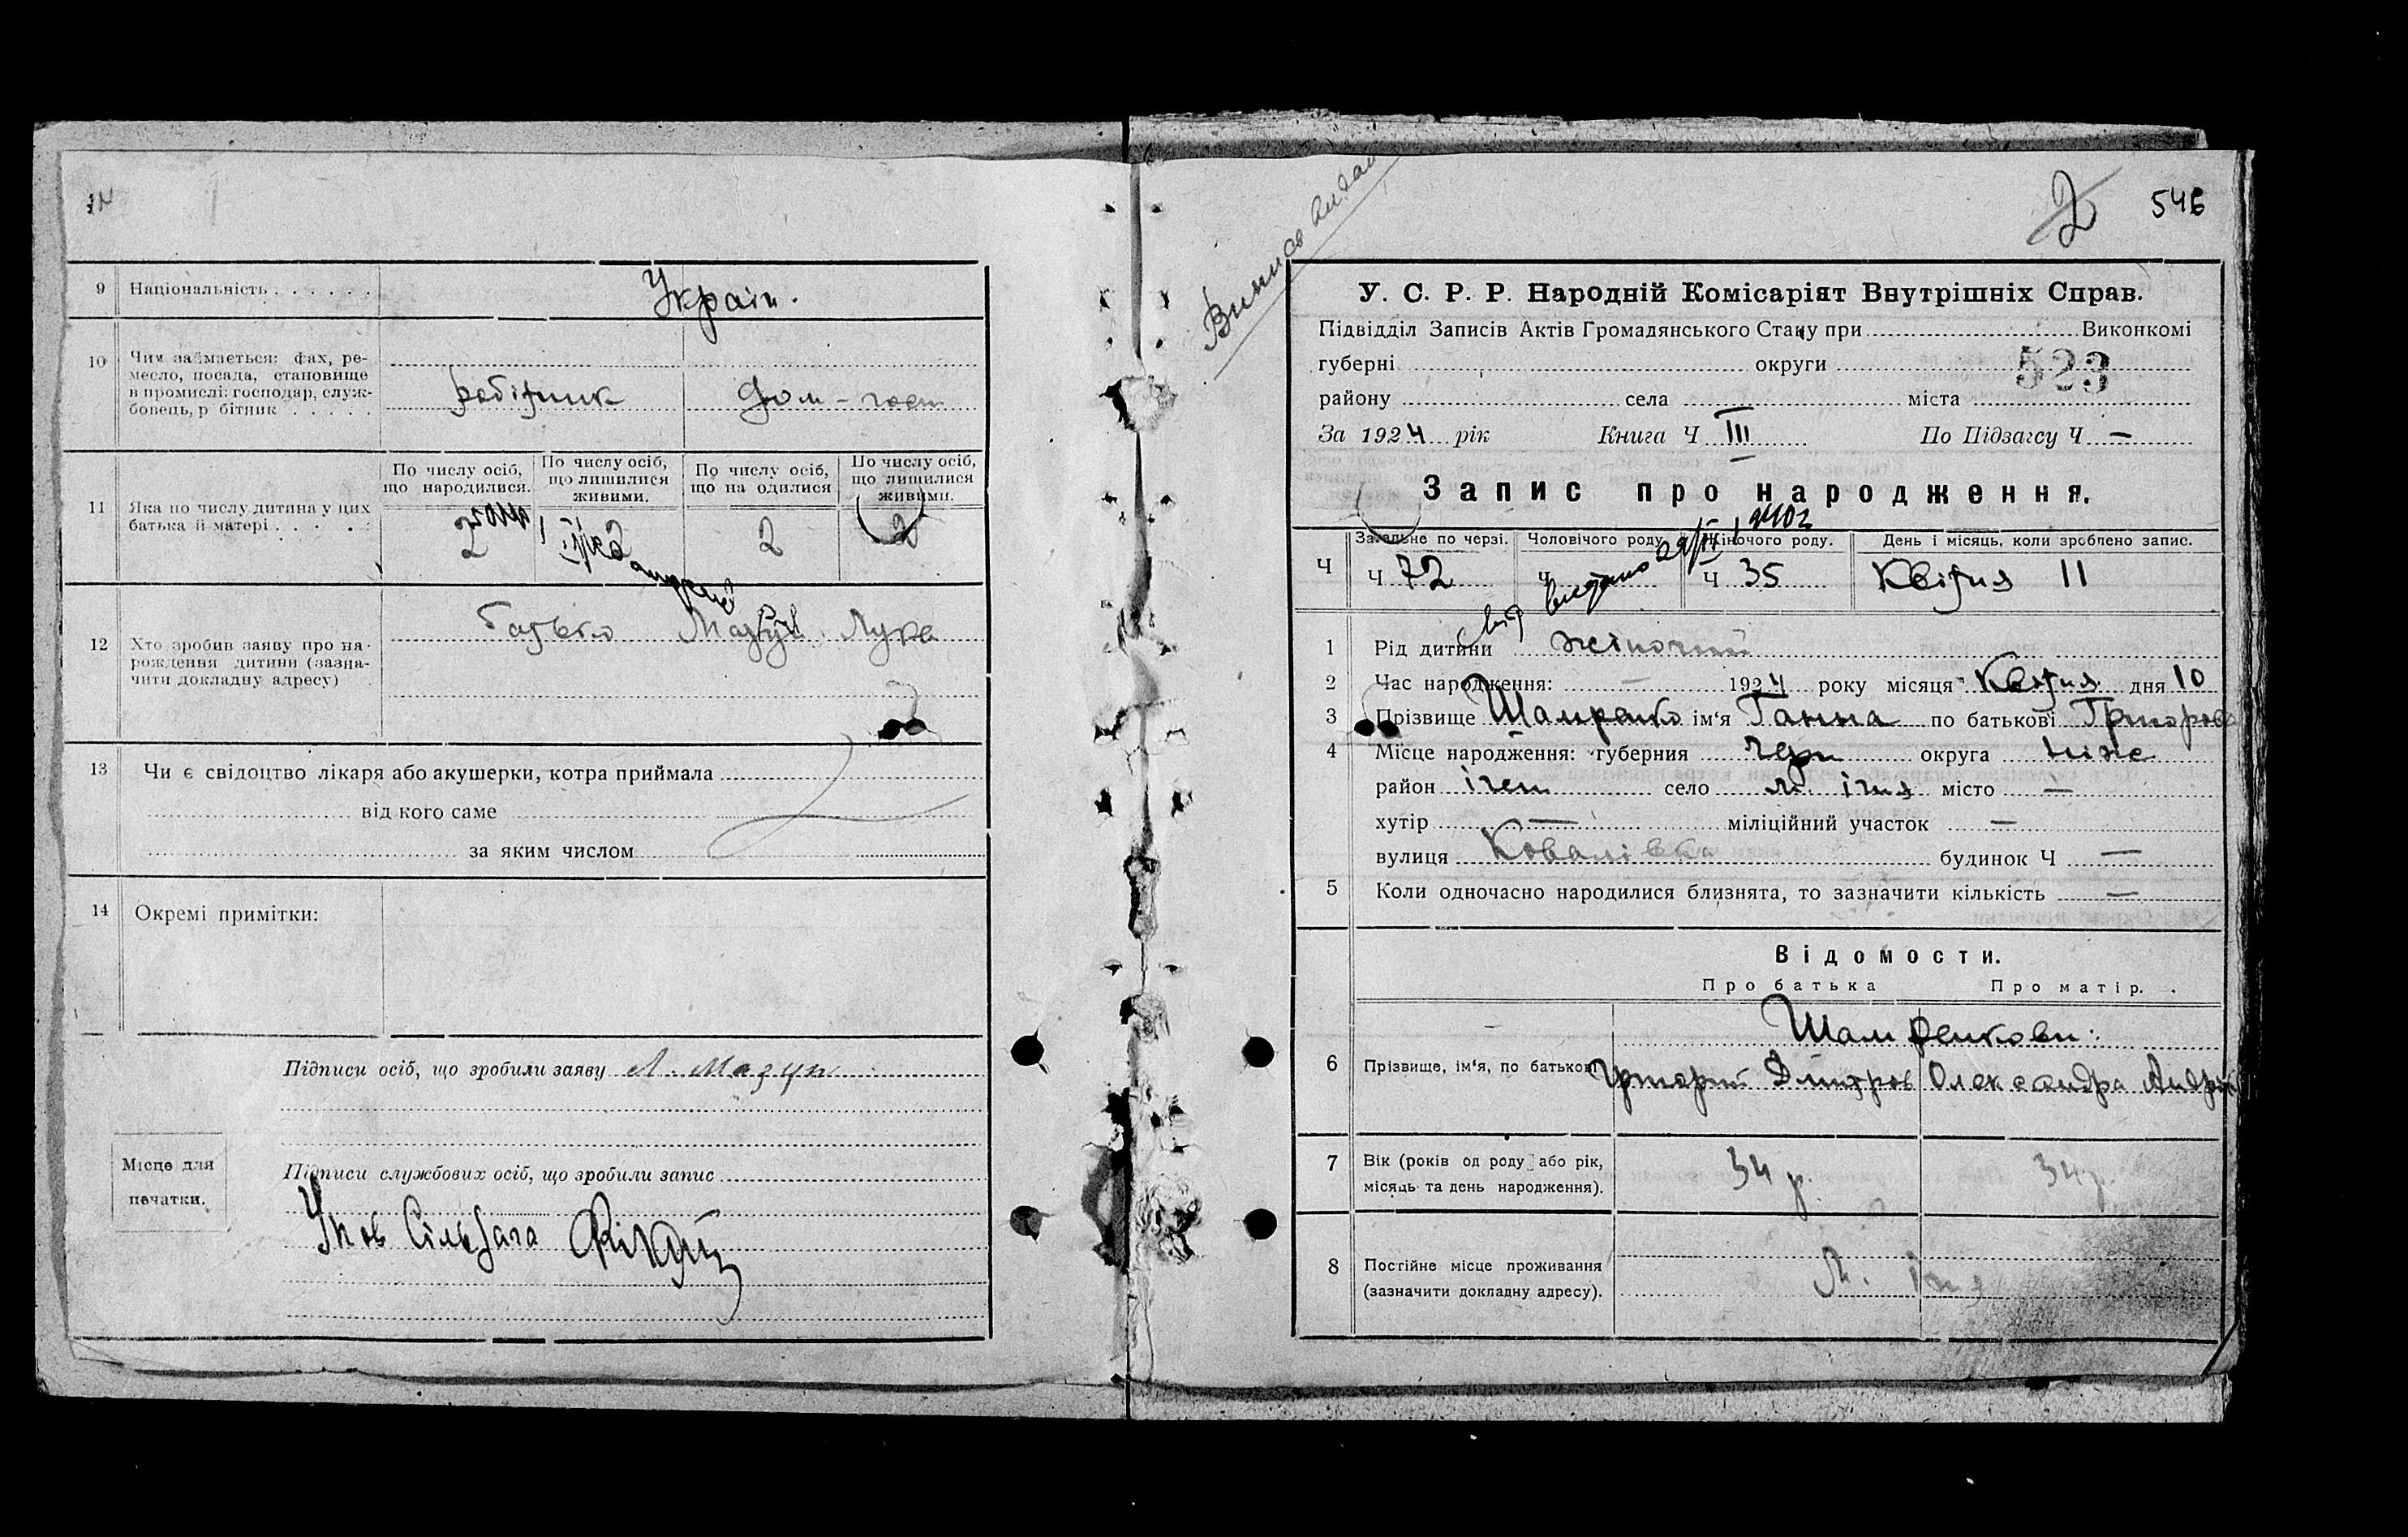 9 Національність . . . . . . Україн.
10 Чим займається: фах, ре-
месло, посада, становище
в промислі: господар, служ-
бовець, р бітник . . . . .
робітник дом-госп
11 Яка по числу дитина у цих
батька й матері . . . . .
По числу осіб,
що народилися.
По числу осіб,
що лишилися
живими.
По числу осіб,
що на одилися
По числу осіб,
що лишилися
живими.
2 2 2 2
12 Хто зробив заяву про на-
рождення дитини (зазна-
чити докладну адресу)
батько Мазун Лука
13 Чи є свідоцтво лікаря або акушерки, котра приймала
від кого саме
за яким числом
14 Окремі примітки:
Підписи осіб, що зробили заяву Л. Мазун
Місце для
печатки.
Підписи службових осіб, що зробили запис
Упов Сільзага
Випись видан
2 546
У. С. Р. Р. Народній Комісаріят Внутрішніх Справ.
Підвідділ Записів Актів Громадянського Стану при Виконкомі
губерні округи 523
району села міста
За 1924 рік Книга Ч III По Підзагсу Ч —
Запис про народження.
Ч
Загальне по черзі. Чоловічого роду. Жіночого роду. День і місяць, коли зроблено запис.
Ч 72 Ч Ч 35 Квітня 11
1 Рід дитини жіночий
2 Час народження: — 1924 року місяця Квітня дня 10
3 Прізвище Шамренко ім'я Ганна по батькові Григоров
4 Місце народження: губерния Черн округа Ніже
район Ічен село м. Ічня місто —
хутір — міліційний участок —
вулиця Ковалівка будинок Ч —
5 Коли одночасно народилися близнята, то зазначити кількість —
Відомости.
Про батька Про матір.
Шамренкови:
6 Прізвище, ім'я, по батькові Григорий Дмитров Олександра Андрій
7 Вік (років од роду або рік,
місяць та день народження).
34 р. 34 р.
8 Постійне місце проживання
(зазначити докладну адресу).
м. Ічня